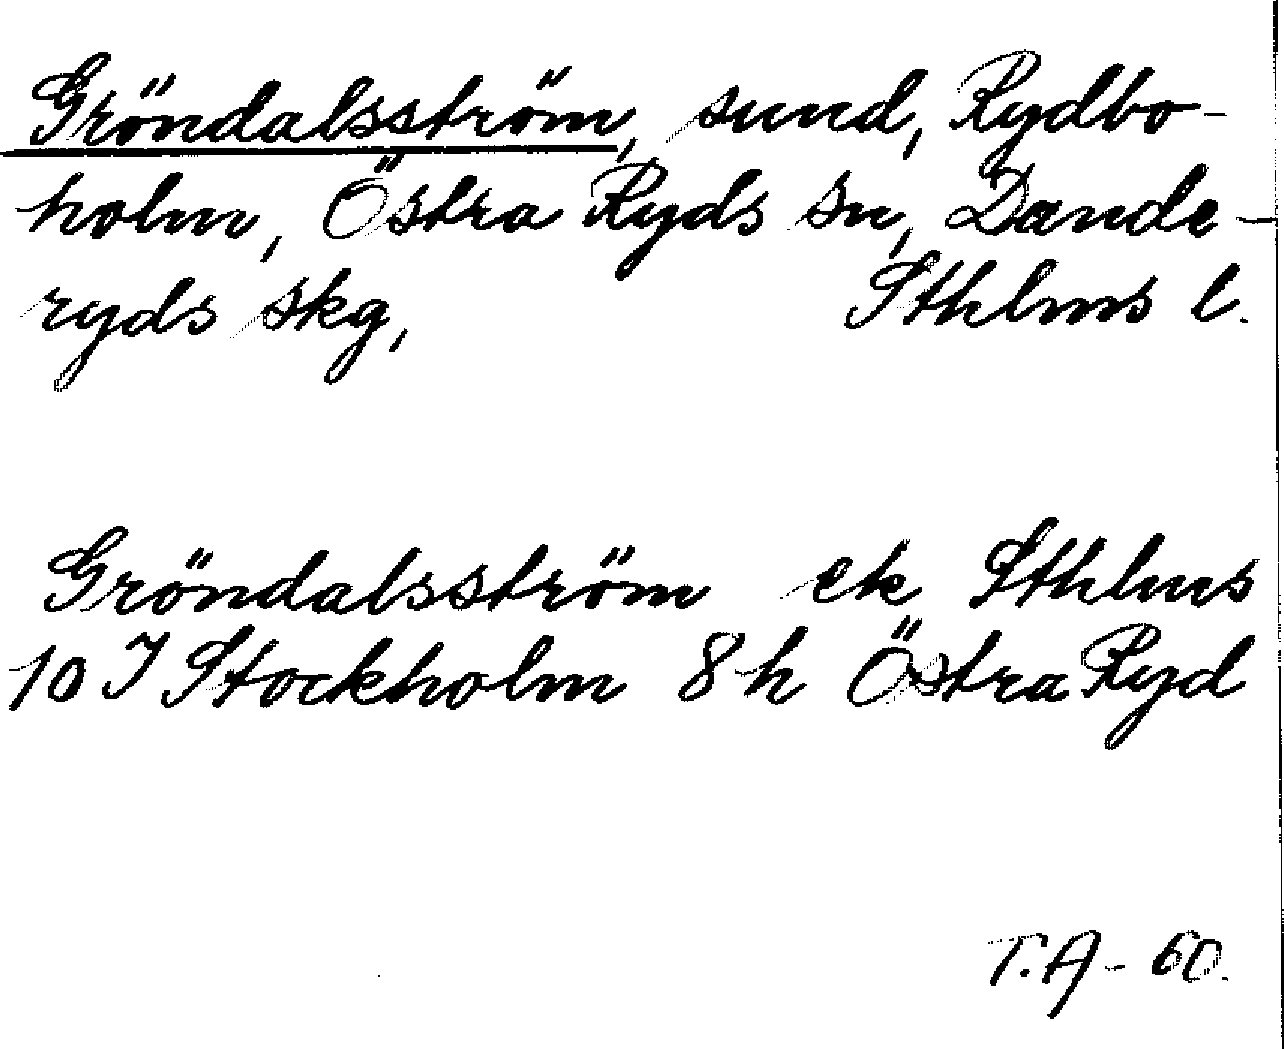 Gröndalsström, sund, Rydbo-
holm, Östra Ryds sn, Dande-
ryds skg, Sthlms l.
Gröndalsström ek Sthlms
10 I Stockholm 8 h Östra Ryd
T.A - 60.